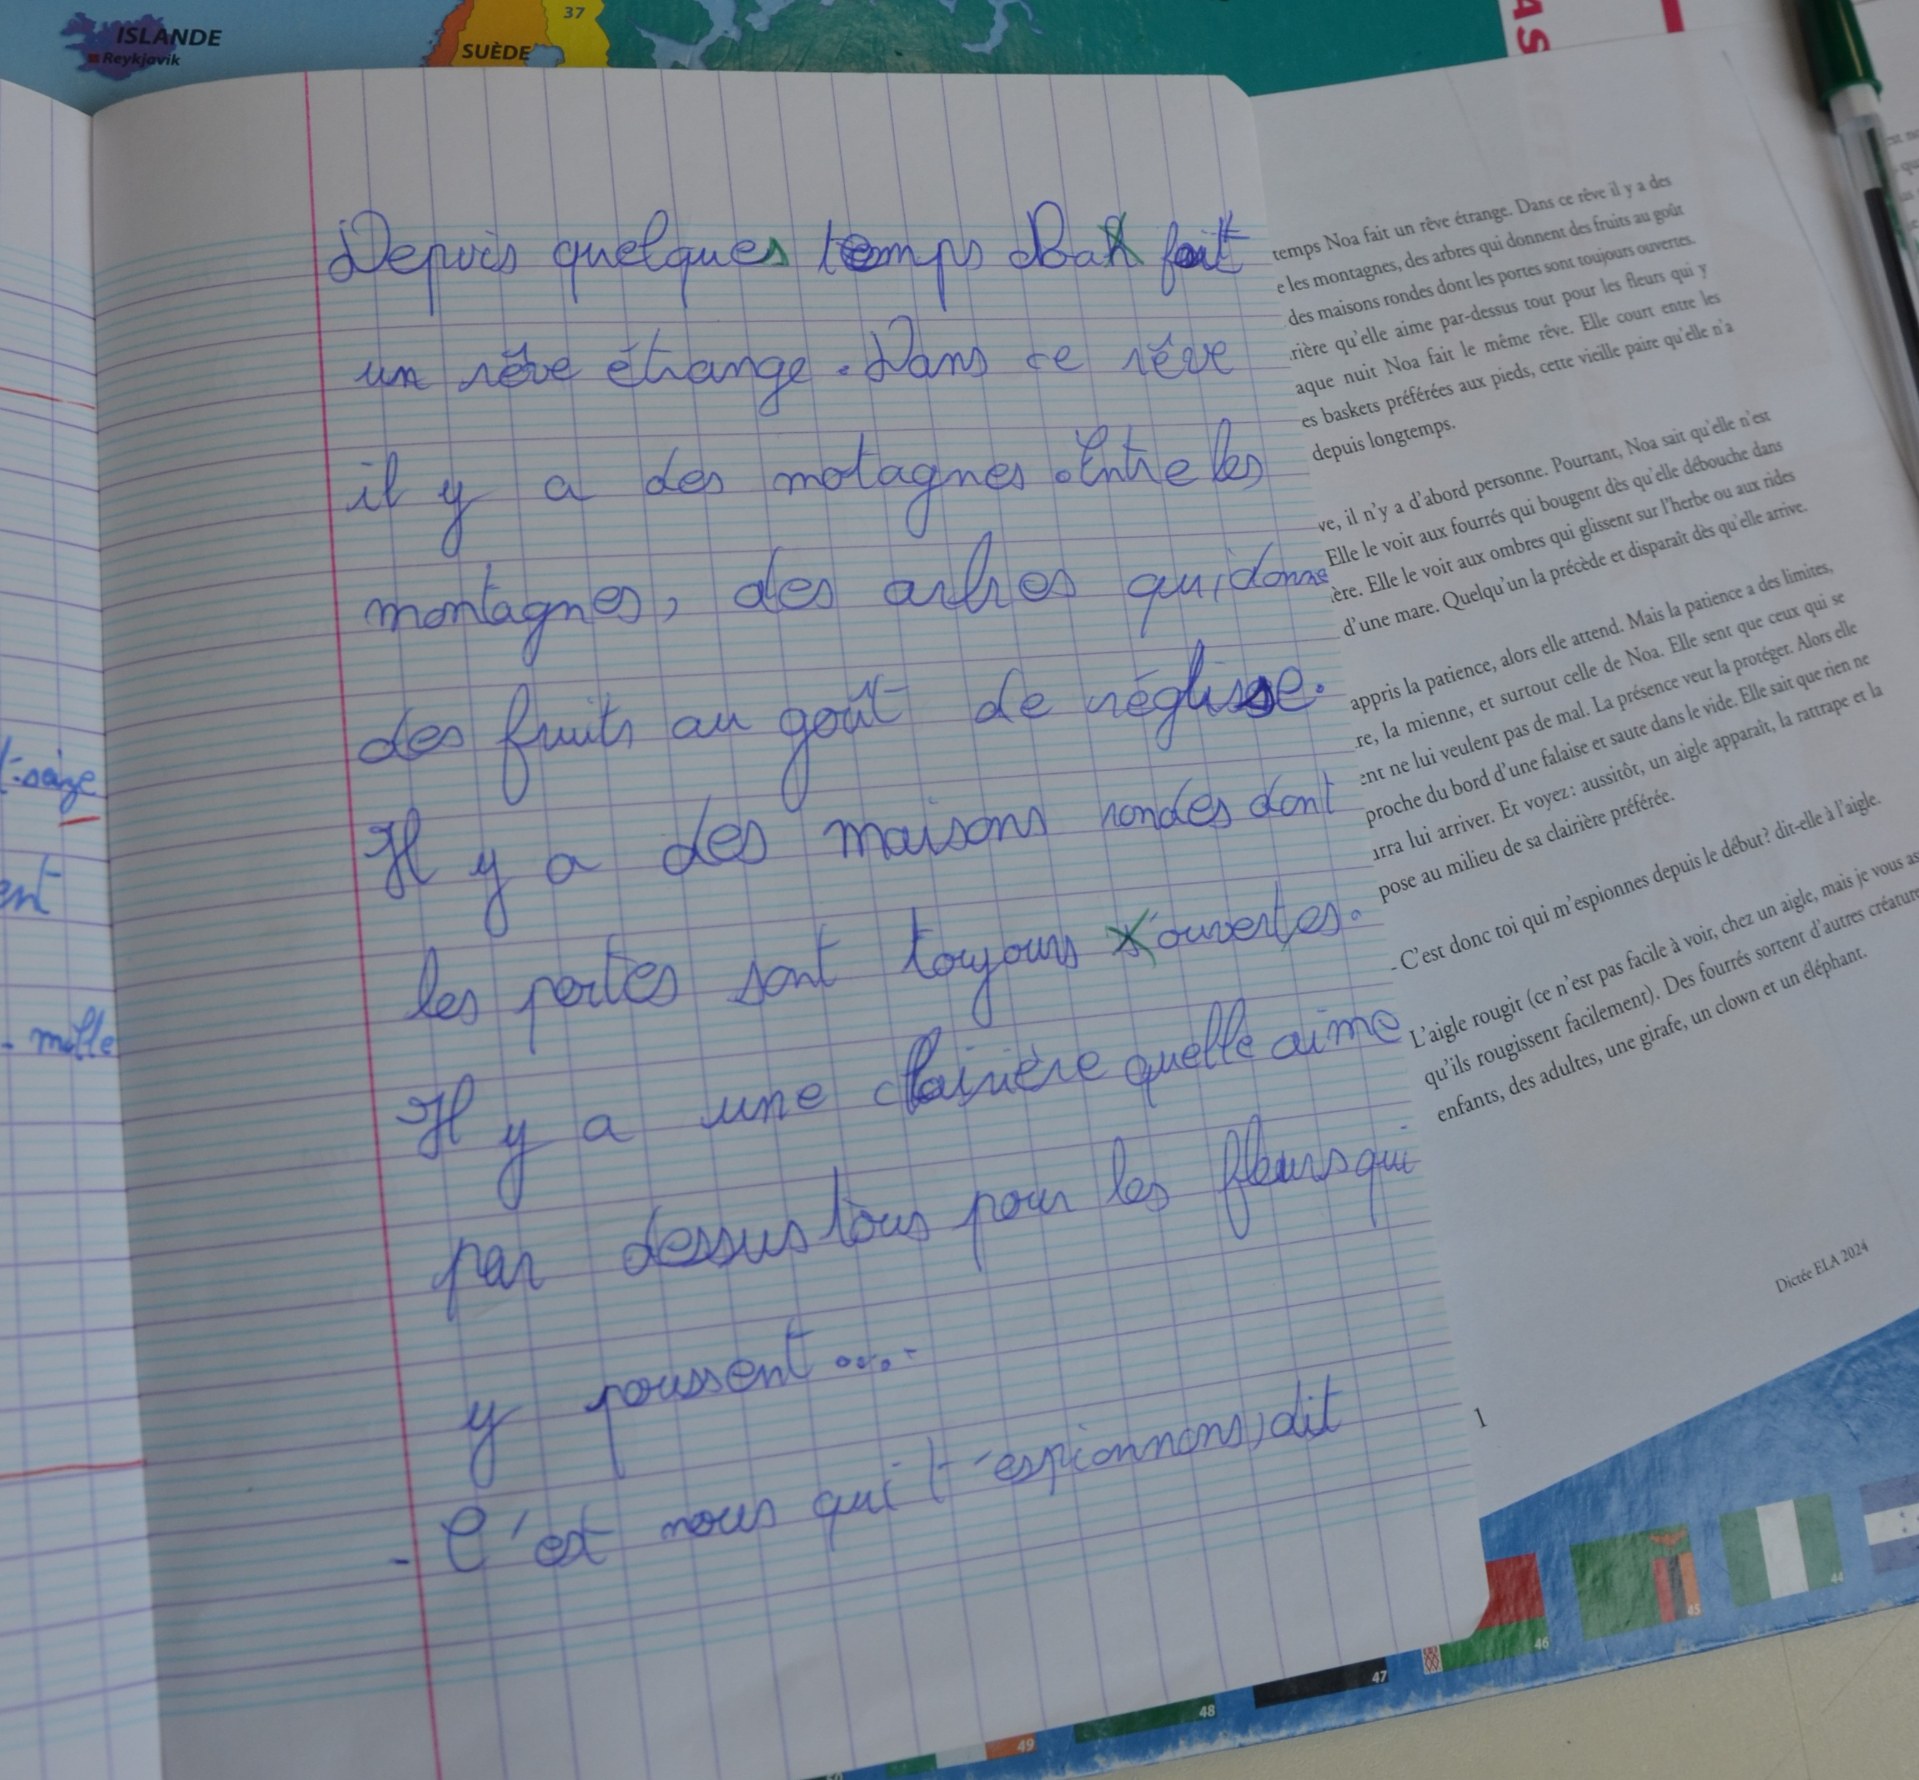 ISLANDE
Reykjavik
SUÈDE
37
Depuis quelques temps fait
un rêve étrange. Dans ce rêve
il y a des motagnes. Entre les
montagnes, des arbres qui donne
des fruits au goût de réglisse.
Il y a des maisons rondes dont
les portes sont toujours ouvertes.
Il y a une clairière quelle aime
par dessus tous pour les fleurs qui
y poussent ....
- C'est nous qui t'espionnons, dit
t-seize
ent
- mille
temps Noa fait un rêve étrange. Dans ce rêve il y a des
e les montagnes, des arbres qui donnent des fruits au goût
des maisons rondes dont les portes sont toujours ouvertes.
rière qu'elle aime par-dessus tout pour les fleurs qui y
aque nuit Noa fait le même rêve. Elle court entre les
es baskets préférées aux pieds, cette vieille paire qu'elle n'a
depuis longtemps.
ve, il n'y a d'abord personne. Pourtant, Noa sait qu'elle n'est
Elle le voit aux fourrés qui bougent dès qu'elle débouche dans
ère. Elle le voit aux ombres qui glissent sur l'herbe ou aux rides
d'une mare. Quelqu'un la précède et disparaît dès qu'elle arrive.
appris la patience, alors elle attend. Mais la patience a des limites,
re, la mienne, et surtout celle de Noa. Elle sent que ceux qui se
ent ne lui veulent pas de mal. La présence veut la protéger. Alors elle
proche du bord d'une falaise et saute dans le vide. Elle sait que rien ne
urra lui arriver. Et voyez : aussitôt, un aigle apparaît, la rattrape et la
pose au milieu de sa clairière préférée.
- C'est donc toi qui m'espionnes depuis le début ? dit-elle à l'aigle.
L'aigle rougit (ce n'est pas facile à voir, chez un aigle, mais je vous as
qu'ils rougissent facilement). Des fourrés sortent d'autres créature
enfants, des adultes, une girafe, un clown et un éléphant.
Dictée ELA 2024
1
44
45
46
47
48
49